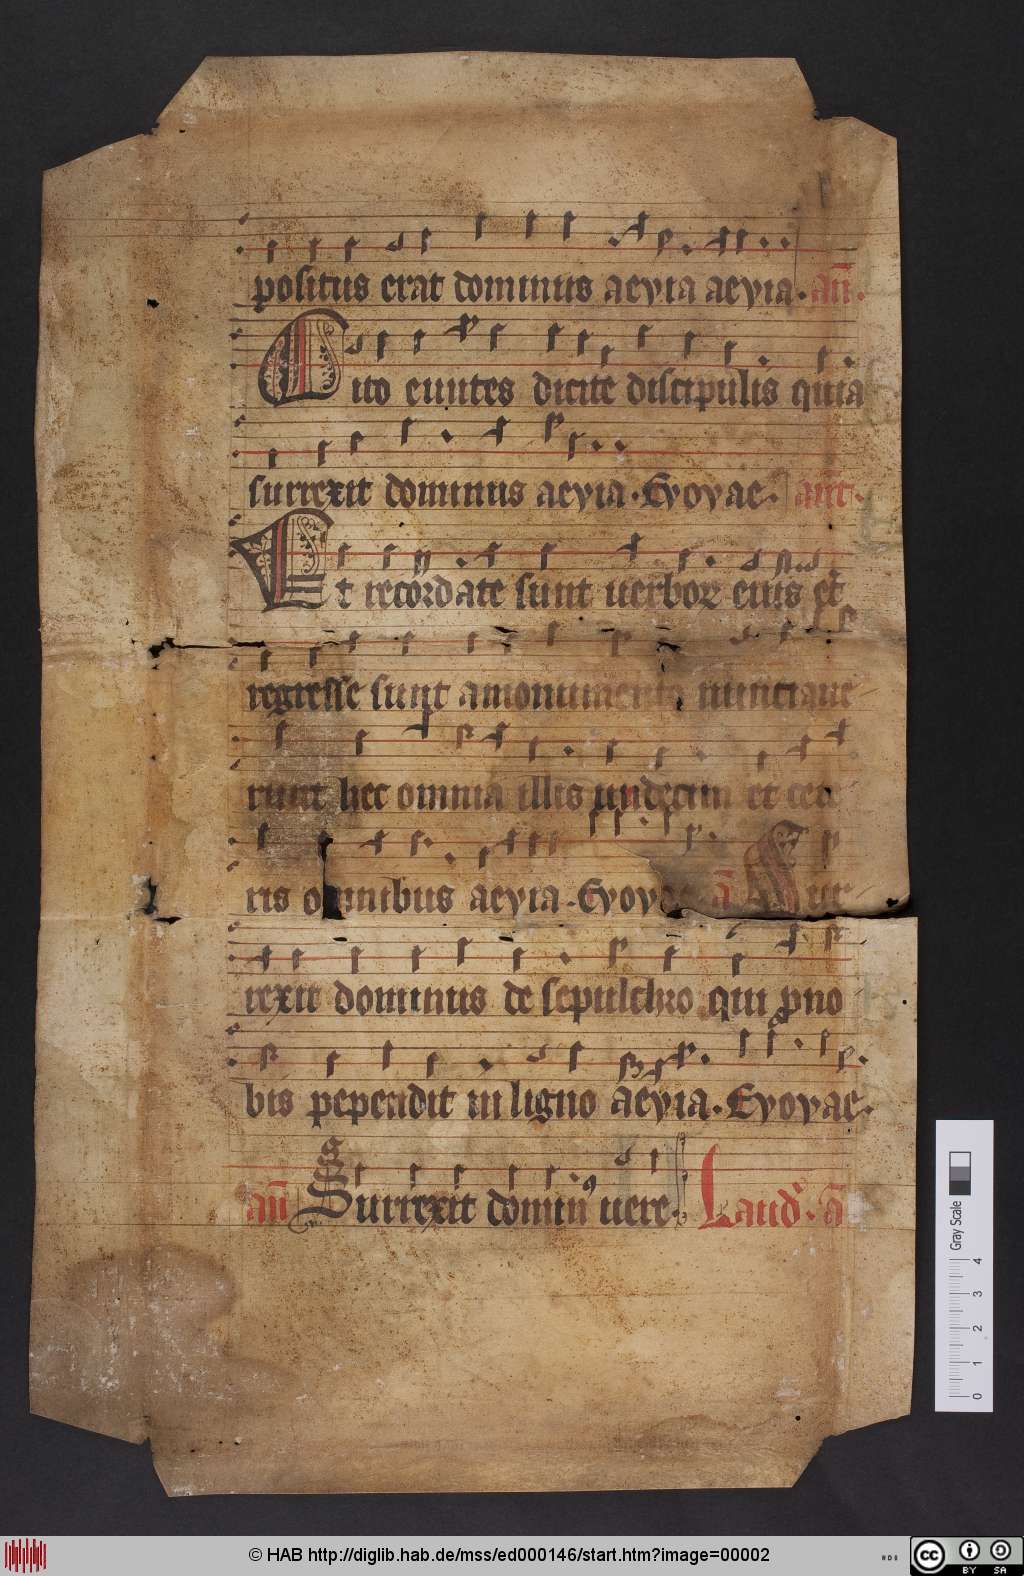 positus erat dominus aevia aevia. an̄.
Cito euntes dicite discipulis quia
surrexit dominus aevia. Evovae. ant.
Et recordate sunt verboꝝ eius et
regresse sunt amonumento nunciave
runt hec omnia illis undecim et cete
ris omnibus aevia. Evovae ā Sur
rexit dominus de sepulchro qui pno
bis pependit in ligno aevia. Evovae.
an̄ Surrexit dominꝰ vere. Laud. ā
Gray Scale
0 1 2 3 4
© HAB http://diglib.hab.de/mss/ed000146/start.htm?image=00002
cc BY SA